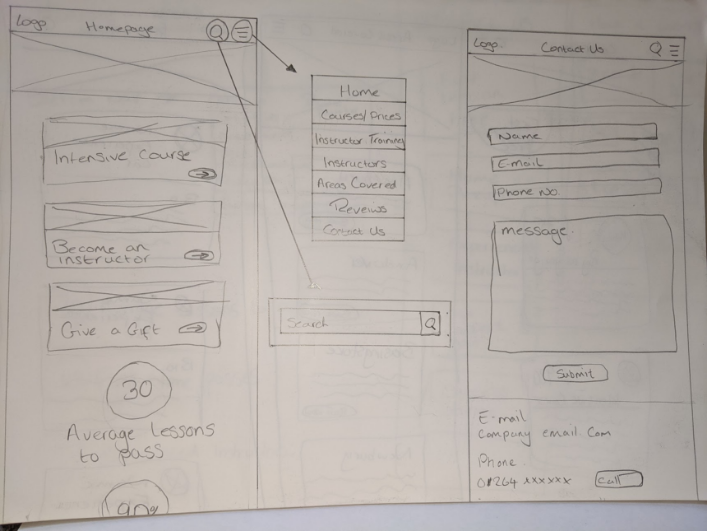 Logo
Homepage
Intensive Course
Become an
instructor
Give a Gift
30
Average Lessons
to pass
Home
Courses/Prices
Instructor Training
Instructors
Areas Covered
Reveiws
Contact Us
Search
Logo
Contact Us
Name
E-mail
Phone No
message.
Submit
E-mail
Company email.Com
Phone
01264 xxxxxx
Call